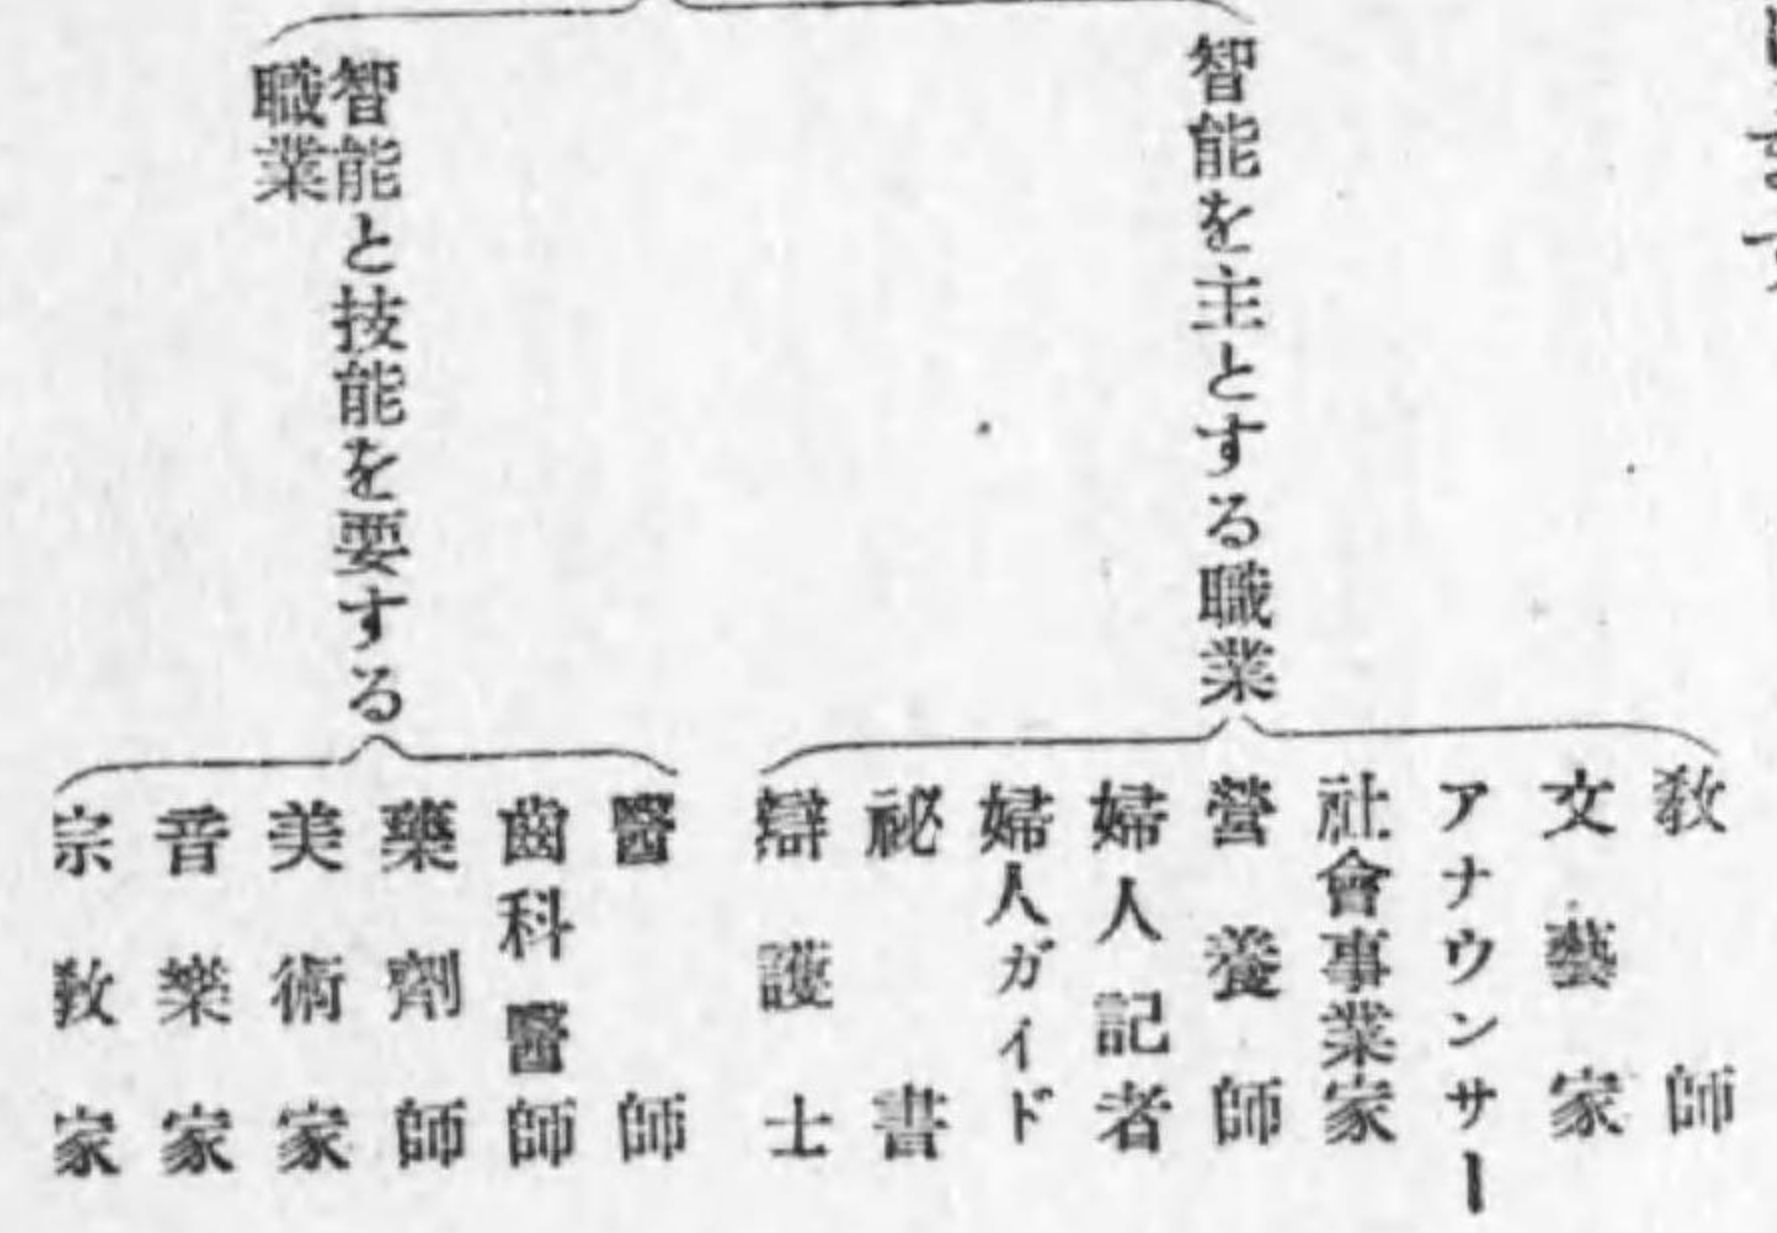 智能を主とする職業
敎師
文藝家
アナウンサー
社會事業家
營養師
婦人記者
婦人ガイド
祕書
辯護士
智能と技能を要する
職業
醫師
齒科醫師
藥劑師
美術家
音樂家
宗敎家